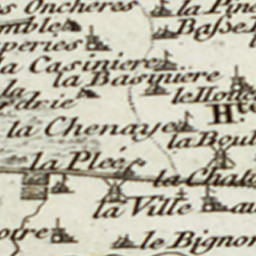 s Oncheres
la Pine
mble
Basse
peries
la Casiniere
la Basiniere
la
drie
le Hou
H.te
la Chenaye
la Boul
la Pleé
la Chat
la Ville
au
oire
le Bignon